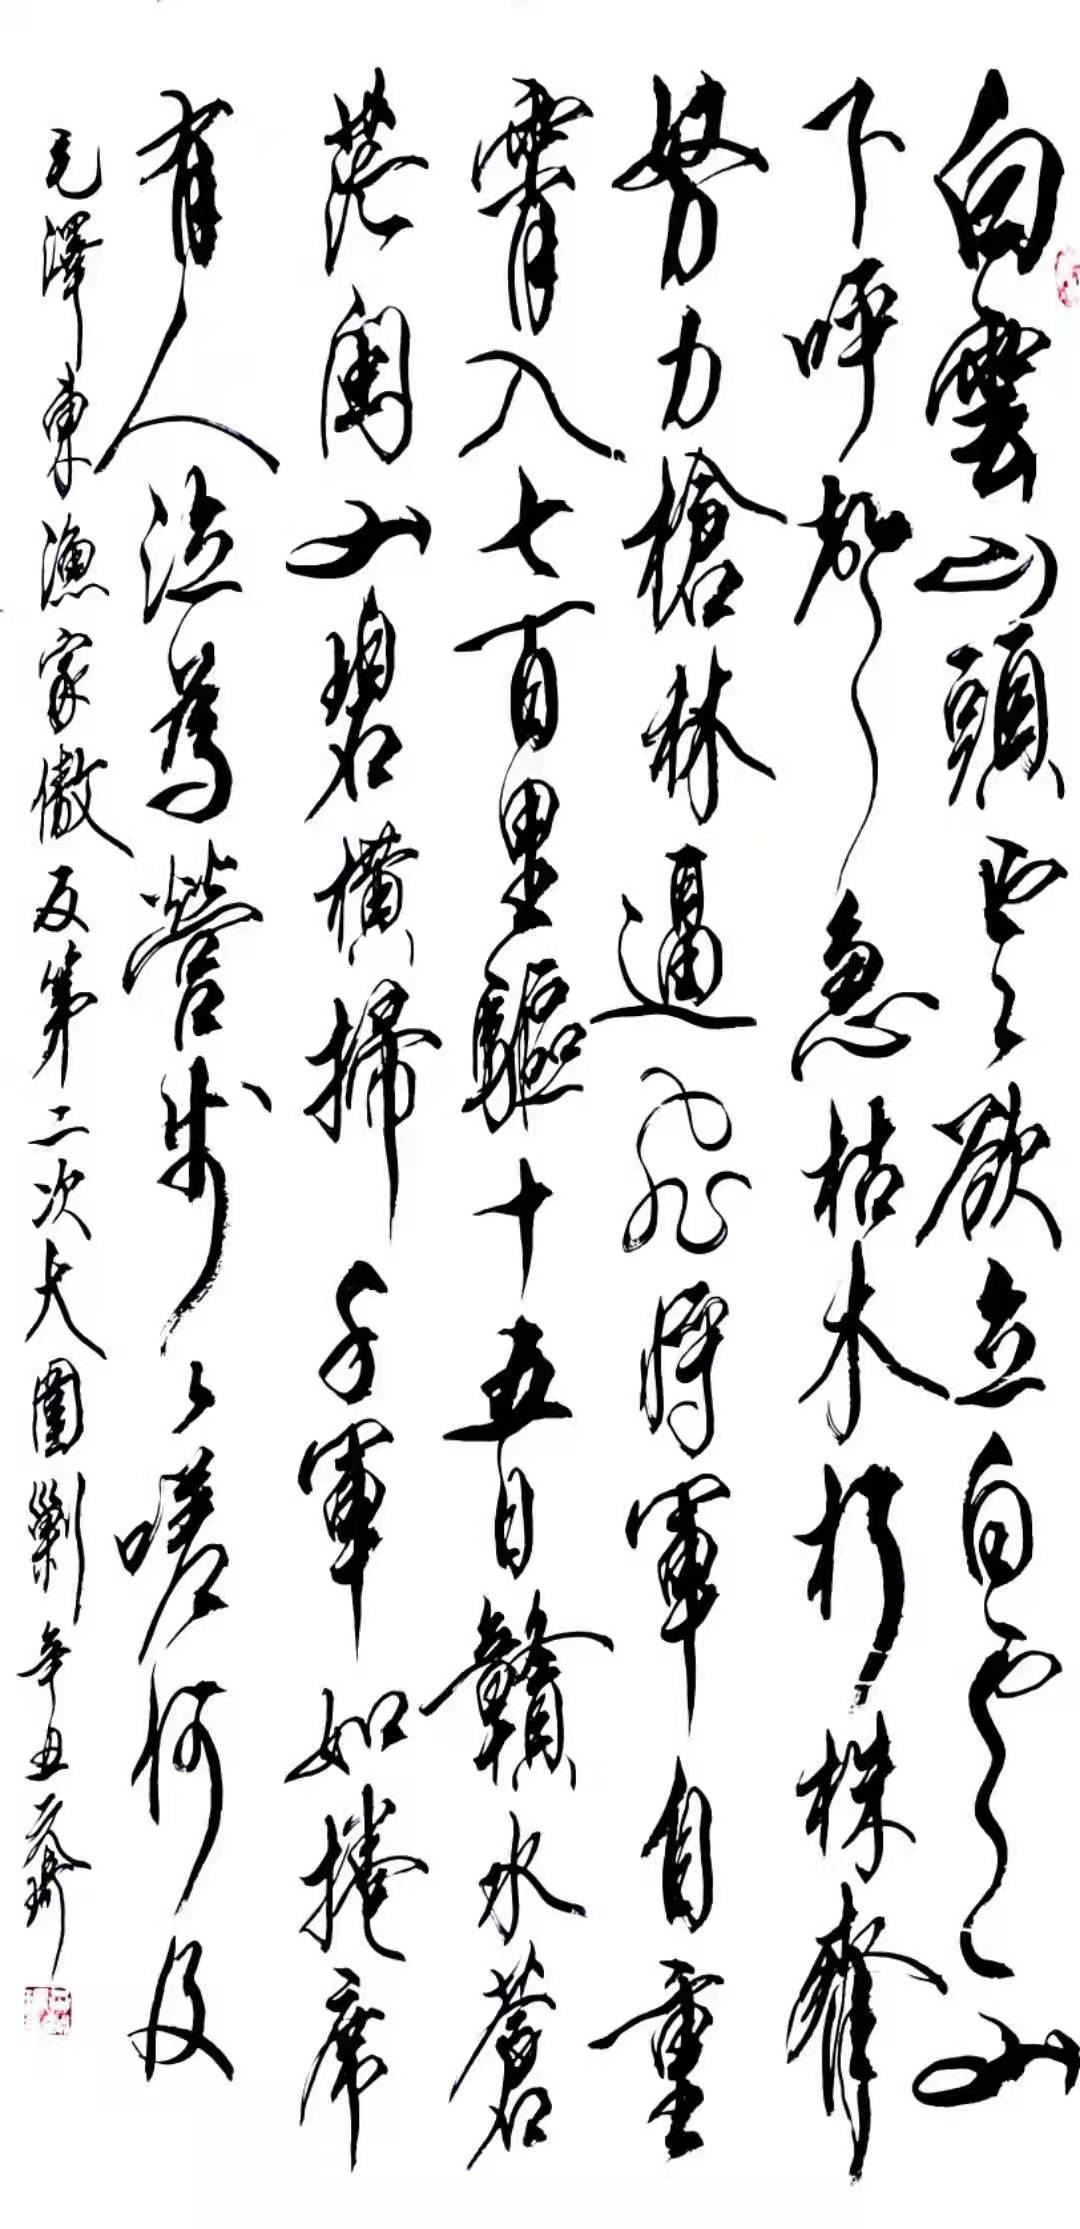 白雲山頭云欲立白云山
下呼聲急枯木朽株齊
努力槍林逼飛將軍自重
霄入七百里驅十五日贛水蒼
茫閩山碧橫掃千軍如捲席
有人泣為營步〻嗟何及
毛澤東漁家傲反第二次大圍剿辛丑